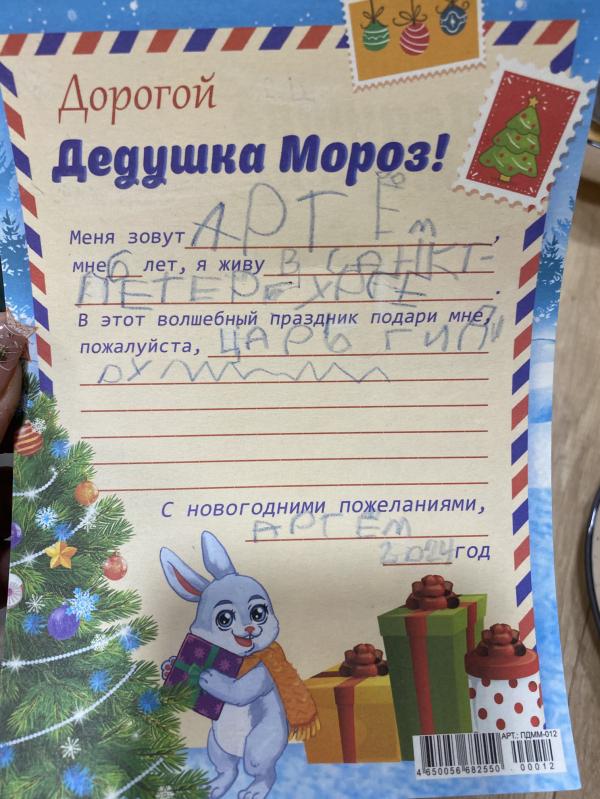 Дорогой
Дедушка Мороз!
Меня зовут АРТЁм,
мне 6 лет, я живу В САНКТ-
ПЕТЕРБУРГЕ.
В этот волшебный праздник подари мне,
пожалуйста, ЦАРЬ ГИД
РУ
С новогодними пожеланиями,
АРТЁМ
2024 год
АРТ.: ПДММ-012
4 650056 682550 .00012